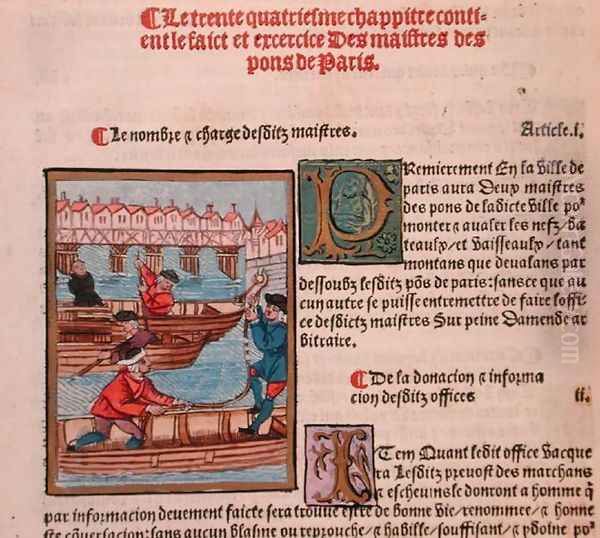 ¶Le trente quatriesme chappitre conti-
ent le faict et excercice Des maistres des
pons de Paris.
¶Le nombre ⁊ charge desditz maistres.
Article.i.
PRemierement En la ville de
paris aura Deux maistres
des pons de ladicte ville po²
monter ⁊ aualer les nefz/ ba
teaulx/ et Vaisseaulx/ tant
montans que deualans par
dessoubz lesditz põs de paris: sans ce que au
cun autre se puisse entremettre de faire loffi
ce desdictz maistres Sur peine Damende ar
bitraire.
¶De la donacion ⁊ informa
cion desditz offices
ii.
ITem Quant ledit office Vacque
ra Lesditz preuost des marchans
⁊ escheuins le donront a homme q̃
par informacion deuement faicte sera trouue estre de bonne Vie/ renommee/ ⁊ honne
ste cõuersacion: sans aucun blasme ou reprouche/ ⁊ habille/ souffisant/ ⁊ ydoine po²